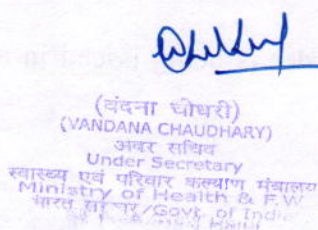 (वंदना चौधरी)
(VANDANA CHAUDHARY)
अवर सचिव
Under Secretary
स्वास्थ्य एवं परिवार कल्याण मंत्रालय
Ministry of Health & F.W
भारत सरकार/Govt. of India